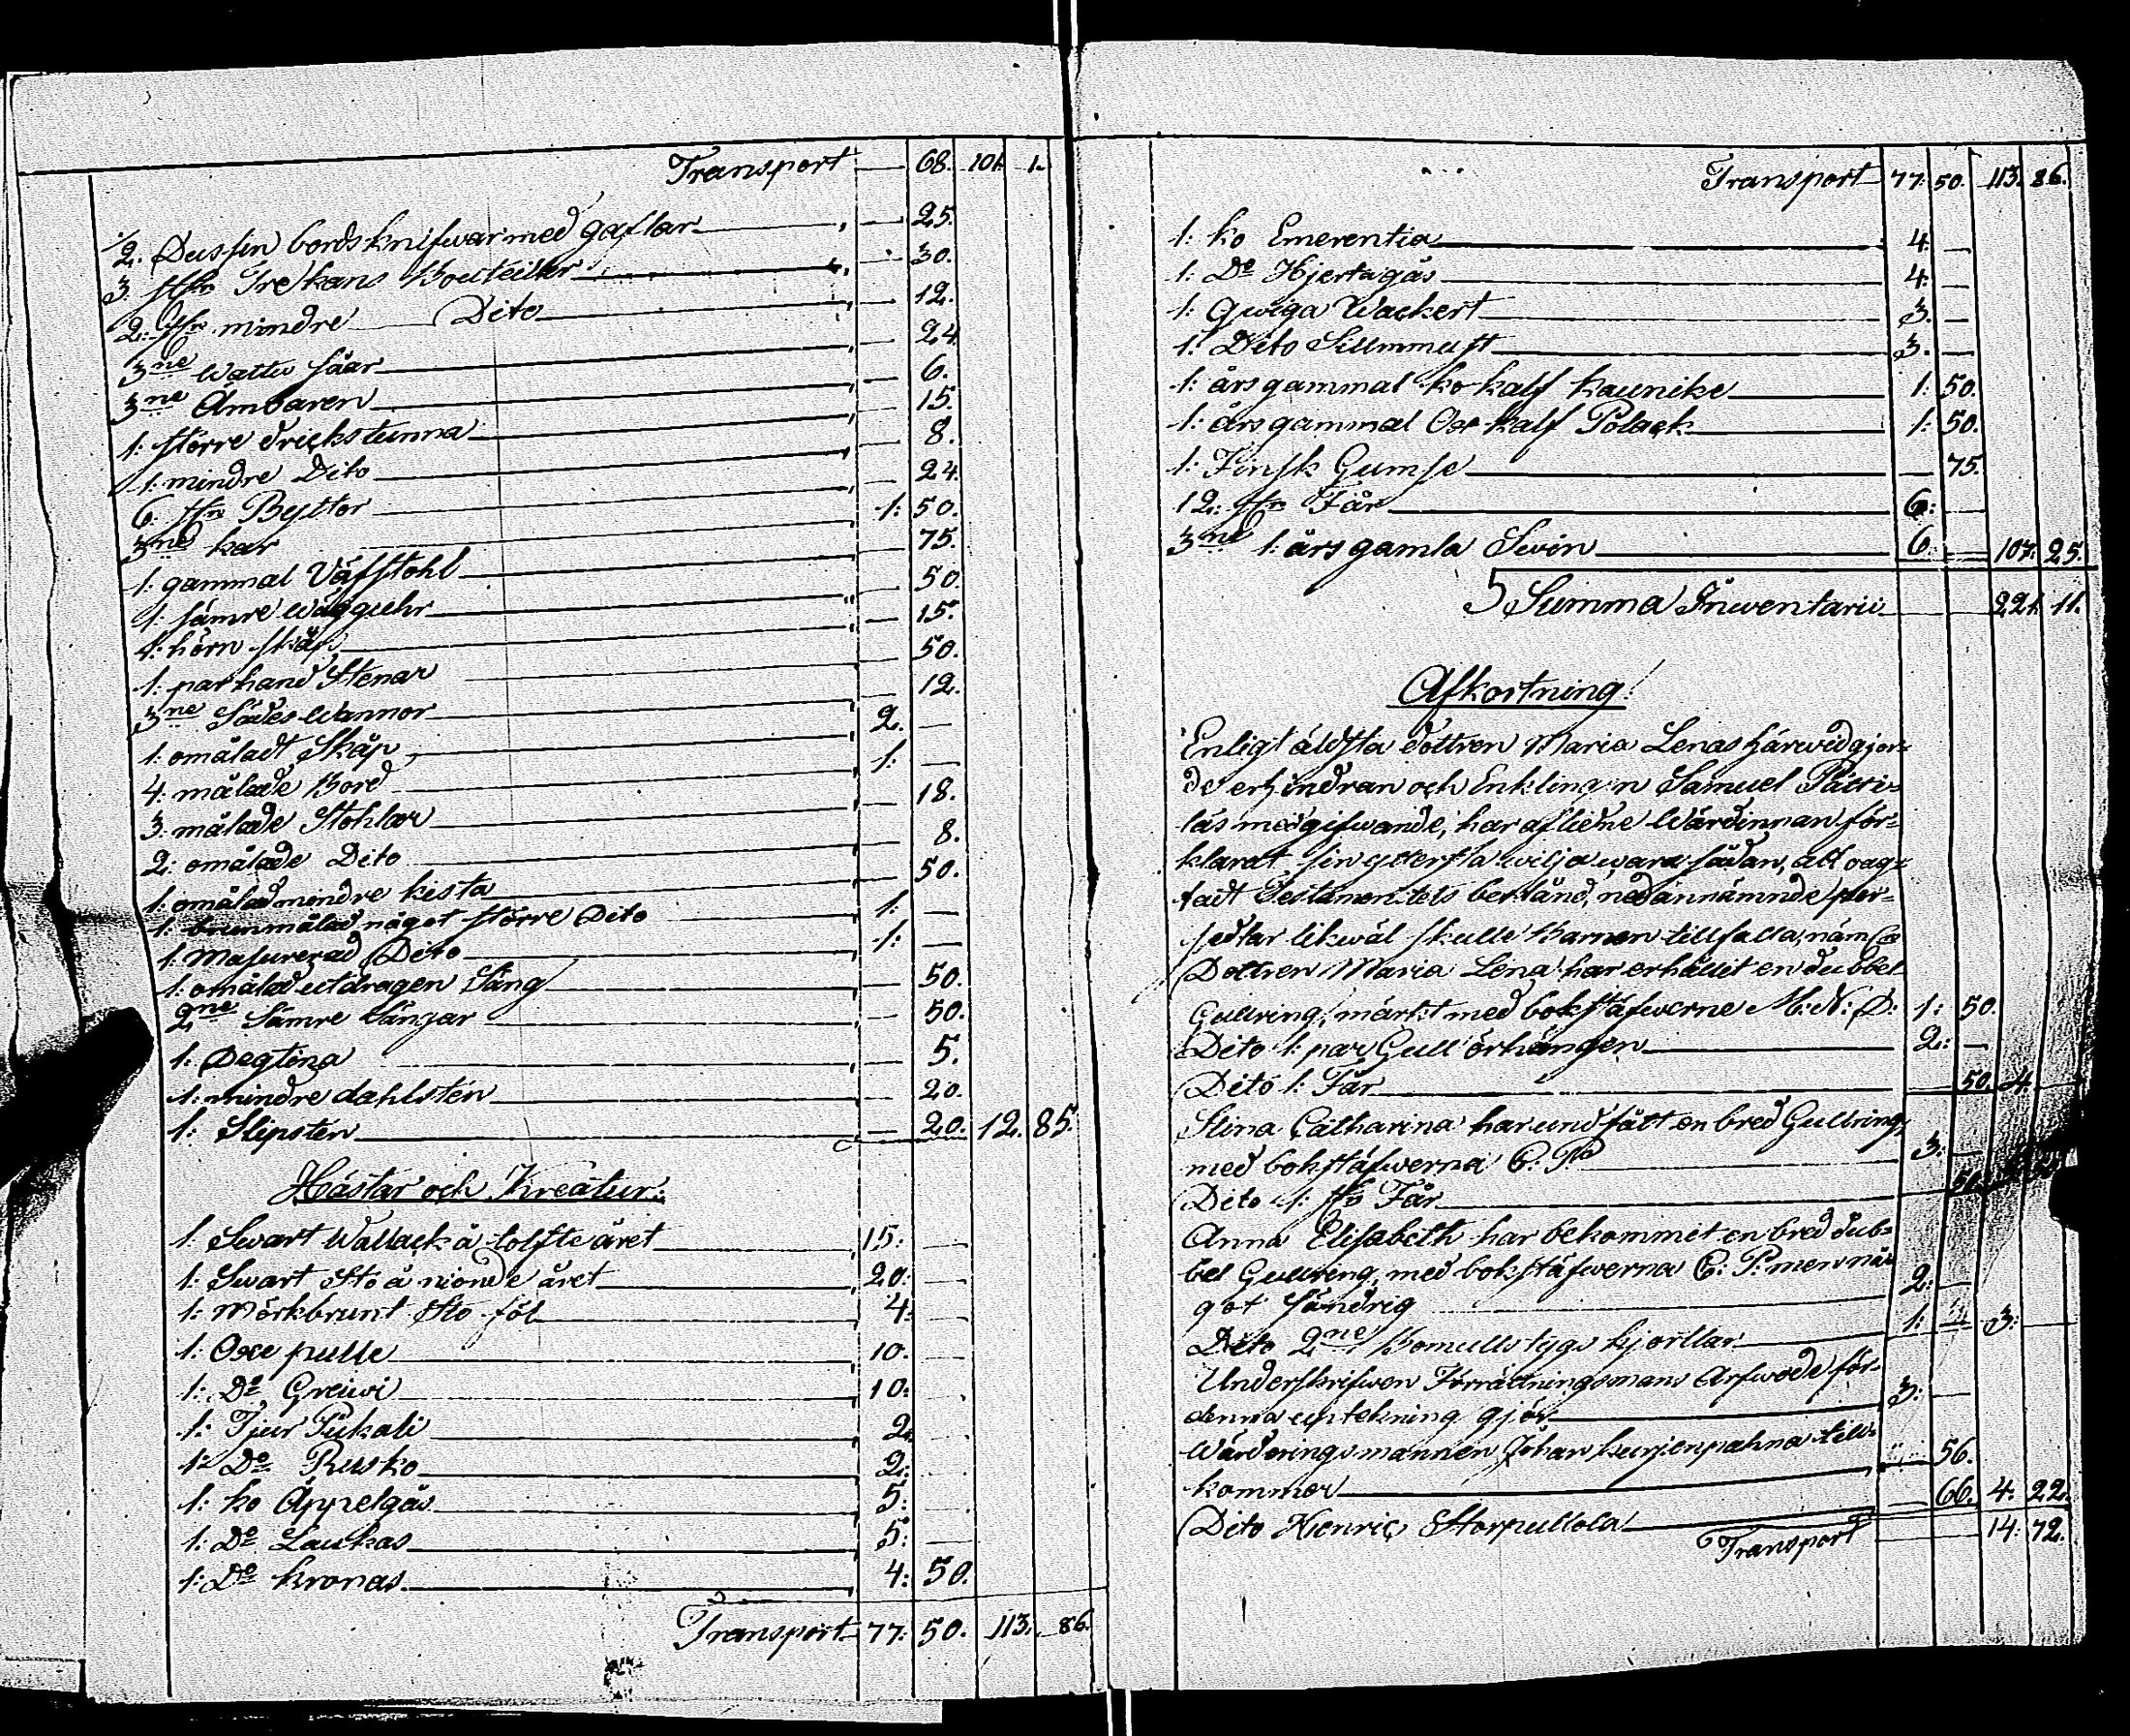 Transport — 68. 101. 1.
1/2. Dussin bordsknifwar med gaflar — 25.
3. st:n Trekans Bouteiller — 30.
2. st:n mindre Dito — 12.
3ne Wattu såar — 24.
3ne Ämbaren — 6.
1: större drickstunna — 15.
1: mindre Dito — 8.
6. st:n Byttor — 24.
3ne kar 1: 50.
1: gammal Väfstohl — 75.
1: sämre Wägguhr — 50.
1: hörn skåp — 15.
1: par hand Stenar — 50.
3ne Sädes Wannor — 12.
1: omåladt Skåp 2. —
4: målade Bord 1: —
3: målade Stohlar — 18.
2: omålade Dito — 8.
1: omålad mindre kista — 50.
1: brunmålad något större Dito 1: —
1: Masurerad Dito 1: —
1: omålad utdragen Säng — 50.
2ne Sämre Sängar — 50.
1: Degtina — 5.
1: mindre dahlsten — 20.
1: Slipsten — 20. 12. 85.
Hästar och Kreatur:
1: Swart Wallack å tolfte året 15: —
1: Swart Sto å nionde året 20: —
1: Mörkbrunt Sto föl 4: —
1: Oxe pulle 10. —
1: Do Greiwi 10: —
1: Tjur Pukali 2. —
1: Do Rusko 2: —
1: ko Äppelgås 5: —
1: Do Laukas 5: —
1: Do Kronas 4: 50.
Transport 77: 50. 113. 86.
Transport 77: 50. 113. 86.
1: ko Emerentia 4. —
1: Do Hjertagås 4: —
1: Qwiga Wackert 3. —
1: Dito Sillmmust 3. —
1: årsgammal ko kalf Kaunike 1: 50.
1: årsgammal Oxe kalf Polack 1: 50.
1: Finsk Gumse — 75.
12: st:n Får 6: —
3ne 1: års gamla Swin 6 — 107. 25.
Summa Inwentarii 221. 11.
Afkortning!
Enligt äldsta dottren Maria Lenas härwid gjor=
de erhindran och Enklingen Samuel
läs medgifwande, har aflidne Wärdinnan för=
klarat sin yttersta wilja wara sådan, att oag=
tadt Testamentets bestånd, nedannämnde per=
sedlar likwäl skulle Barnen tillfalla, näml:
Dottren Maria Lena har erhållit en dubbel
Gullring, märkt med bokstäfwerne M: N: D: 1: 50.
Dito 1: par Gull örhängen 2: —
Dito 1: Får — 50. 4. —
Stina Catharina har undfått en bred Gullring,
med bokstäfwerna C: P. 3: —
Dito 1: st: Får
Anna Elisabeth har bekommit en bred dub=
bel Gullring, med bokstäfwerna C: P: men nå=
got sändrig 2: —
Dito 2ne Bomullstygs kjortlar 1: — 3: —
Underskrifwen Förrättningsmans Arfwode för
denna upteckning gjör 3: —
Wärderingsmannen Johan Kurjenpahna till=
kommer — 56.
Dito Henric Storpullola — 66. 4. 22.
Transport 14: 72.